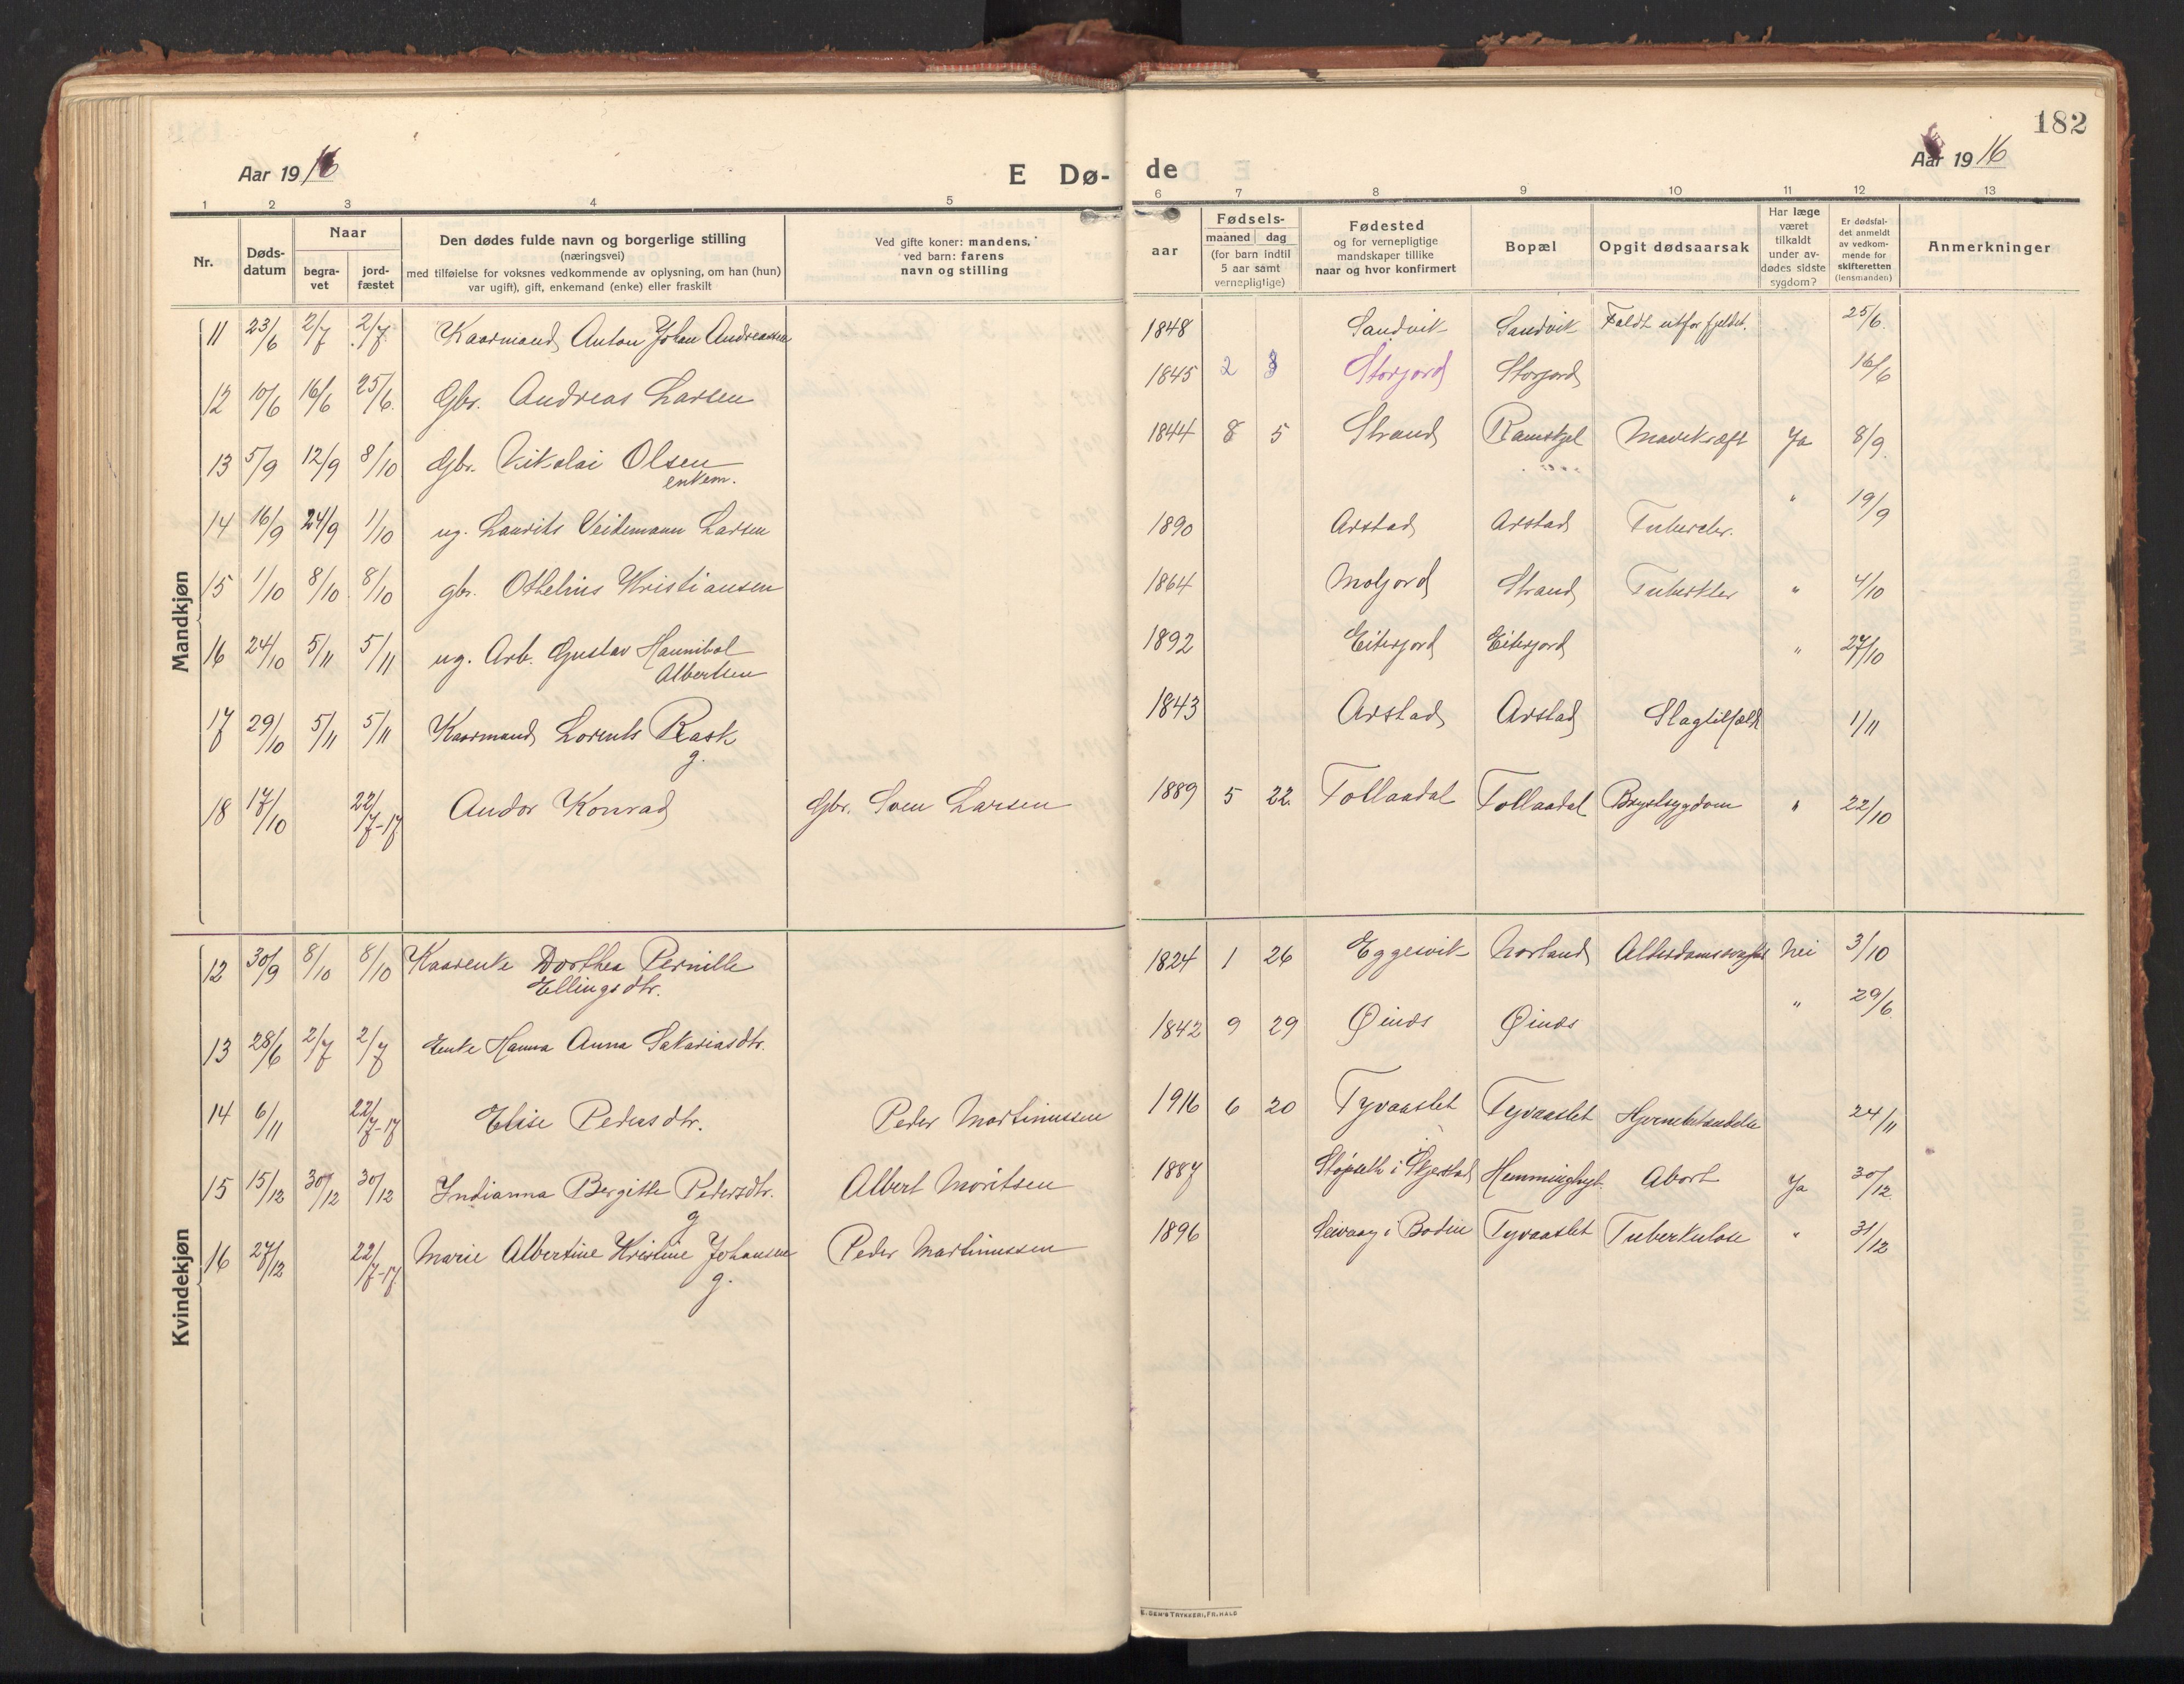 182
Aar 1916 E Dø- de Aar 1916
1 2 3 4 5 6 7 8 9 10 11 12 13
Nr. Døds-datum Naar begra-vet jord-fæstet Den dødes fulde navn og borgerlige stilling (næringsvei) med tilføielse for voksnes vedkommende av oplysning, om han (hun) var ugift), gift, enkemand (enke) eller fraskilt Ved gifte koner: mandens, ved barn: farens navn og stilling aar Fødsels- maaned dag (for barn indtil 5 aar samt vernepligtige) Fødested og for vernepligtige mandskaper tillike naar og hvor konfirmert Bopæl Opgit dødsaarsak Har læge været tilkaldt under av-dødes sidste sygdom? Er dødsfal-det anmeldt av vedkom-mende for skifteretten (lensmanden) Anmerkninger
Mandkjøn
11 23/6 2/7 2/7 Kaarmand Anton Johan Andreassen 1848 Sandvik Sandvik Faldt utfor fjeldet. 25/6
12 10/6 16/6 25/6 Gbr. Andreas Larsen 1845 2 Storjord Storjord 16/6
13 5/9 12/9 8/10 Gbr. Nikolai Olsen 1844 8 5 Strand Ramskjel Mavekræft Ja 8/9
enkem.
14 16/9 24/9 1/10 ug. Laurits Veidemann Larsen 1890 Arstad Arstad Tubercler. " 19/9
15 1/10 8/10 8/10 gbr. Othelius Kristiansen 1864 Moljord Strand Tuberkler " 4/10
16 24/10 5/11 5/11 ug. Arb. Gustav Hannibal 1892 Eiterjord Eiterjord " 27/10
Albertsen
17 29/10 5/11 5/11 Kaarmand Lorents Rask 1843 Arstad Arstad Slagtilfælde 1/11
g.
18 17/10 22/7-17 Andor Konrad Gbr. Sven Larsen 1889 5 22 Tollaadal Tollaadal Brystsygdom " 22/10
Kvindekjøn
12 30/9 8/10 8/10 Kaarenke Dorthea Pernille 1824 1 26 Eggesvik Norland Alderdomssvaghet Nei 3/10
Ellingsdtr.
13 28/6 2/7 2/7 Enke Hanna Anna Sakariasdtr. 1842 9 29 Øinæs Øinæs " 29/6
14 6/11 22/7-17 Elise Pedersdtr. Peder Martinussen 1916 6 20 Tyvaaslet Tyvaaslet 24/11
15 15/12 30/12 30/12 Indianna Bergitte Pedersdtr. Albert Moritsen 1887 i Skjerstad Abort Ja 30/12
g
16 27/12 22/7-17 Marie Albertine Kristine Johansen Peder Martinussen 1896 Seivaag i Bodin Tyvaaslet Tuberkulose " 31/12
g.
E. SEM'S TRYKKERI, FR.HALD